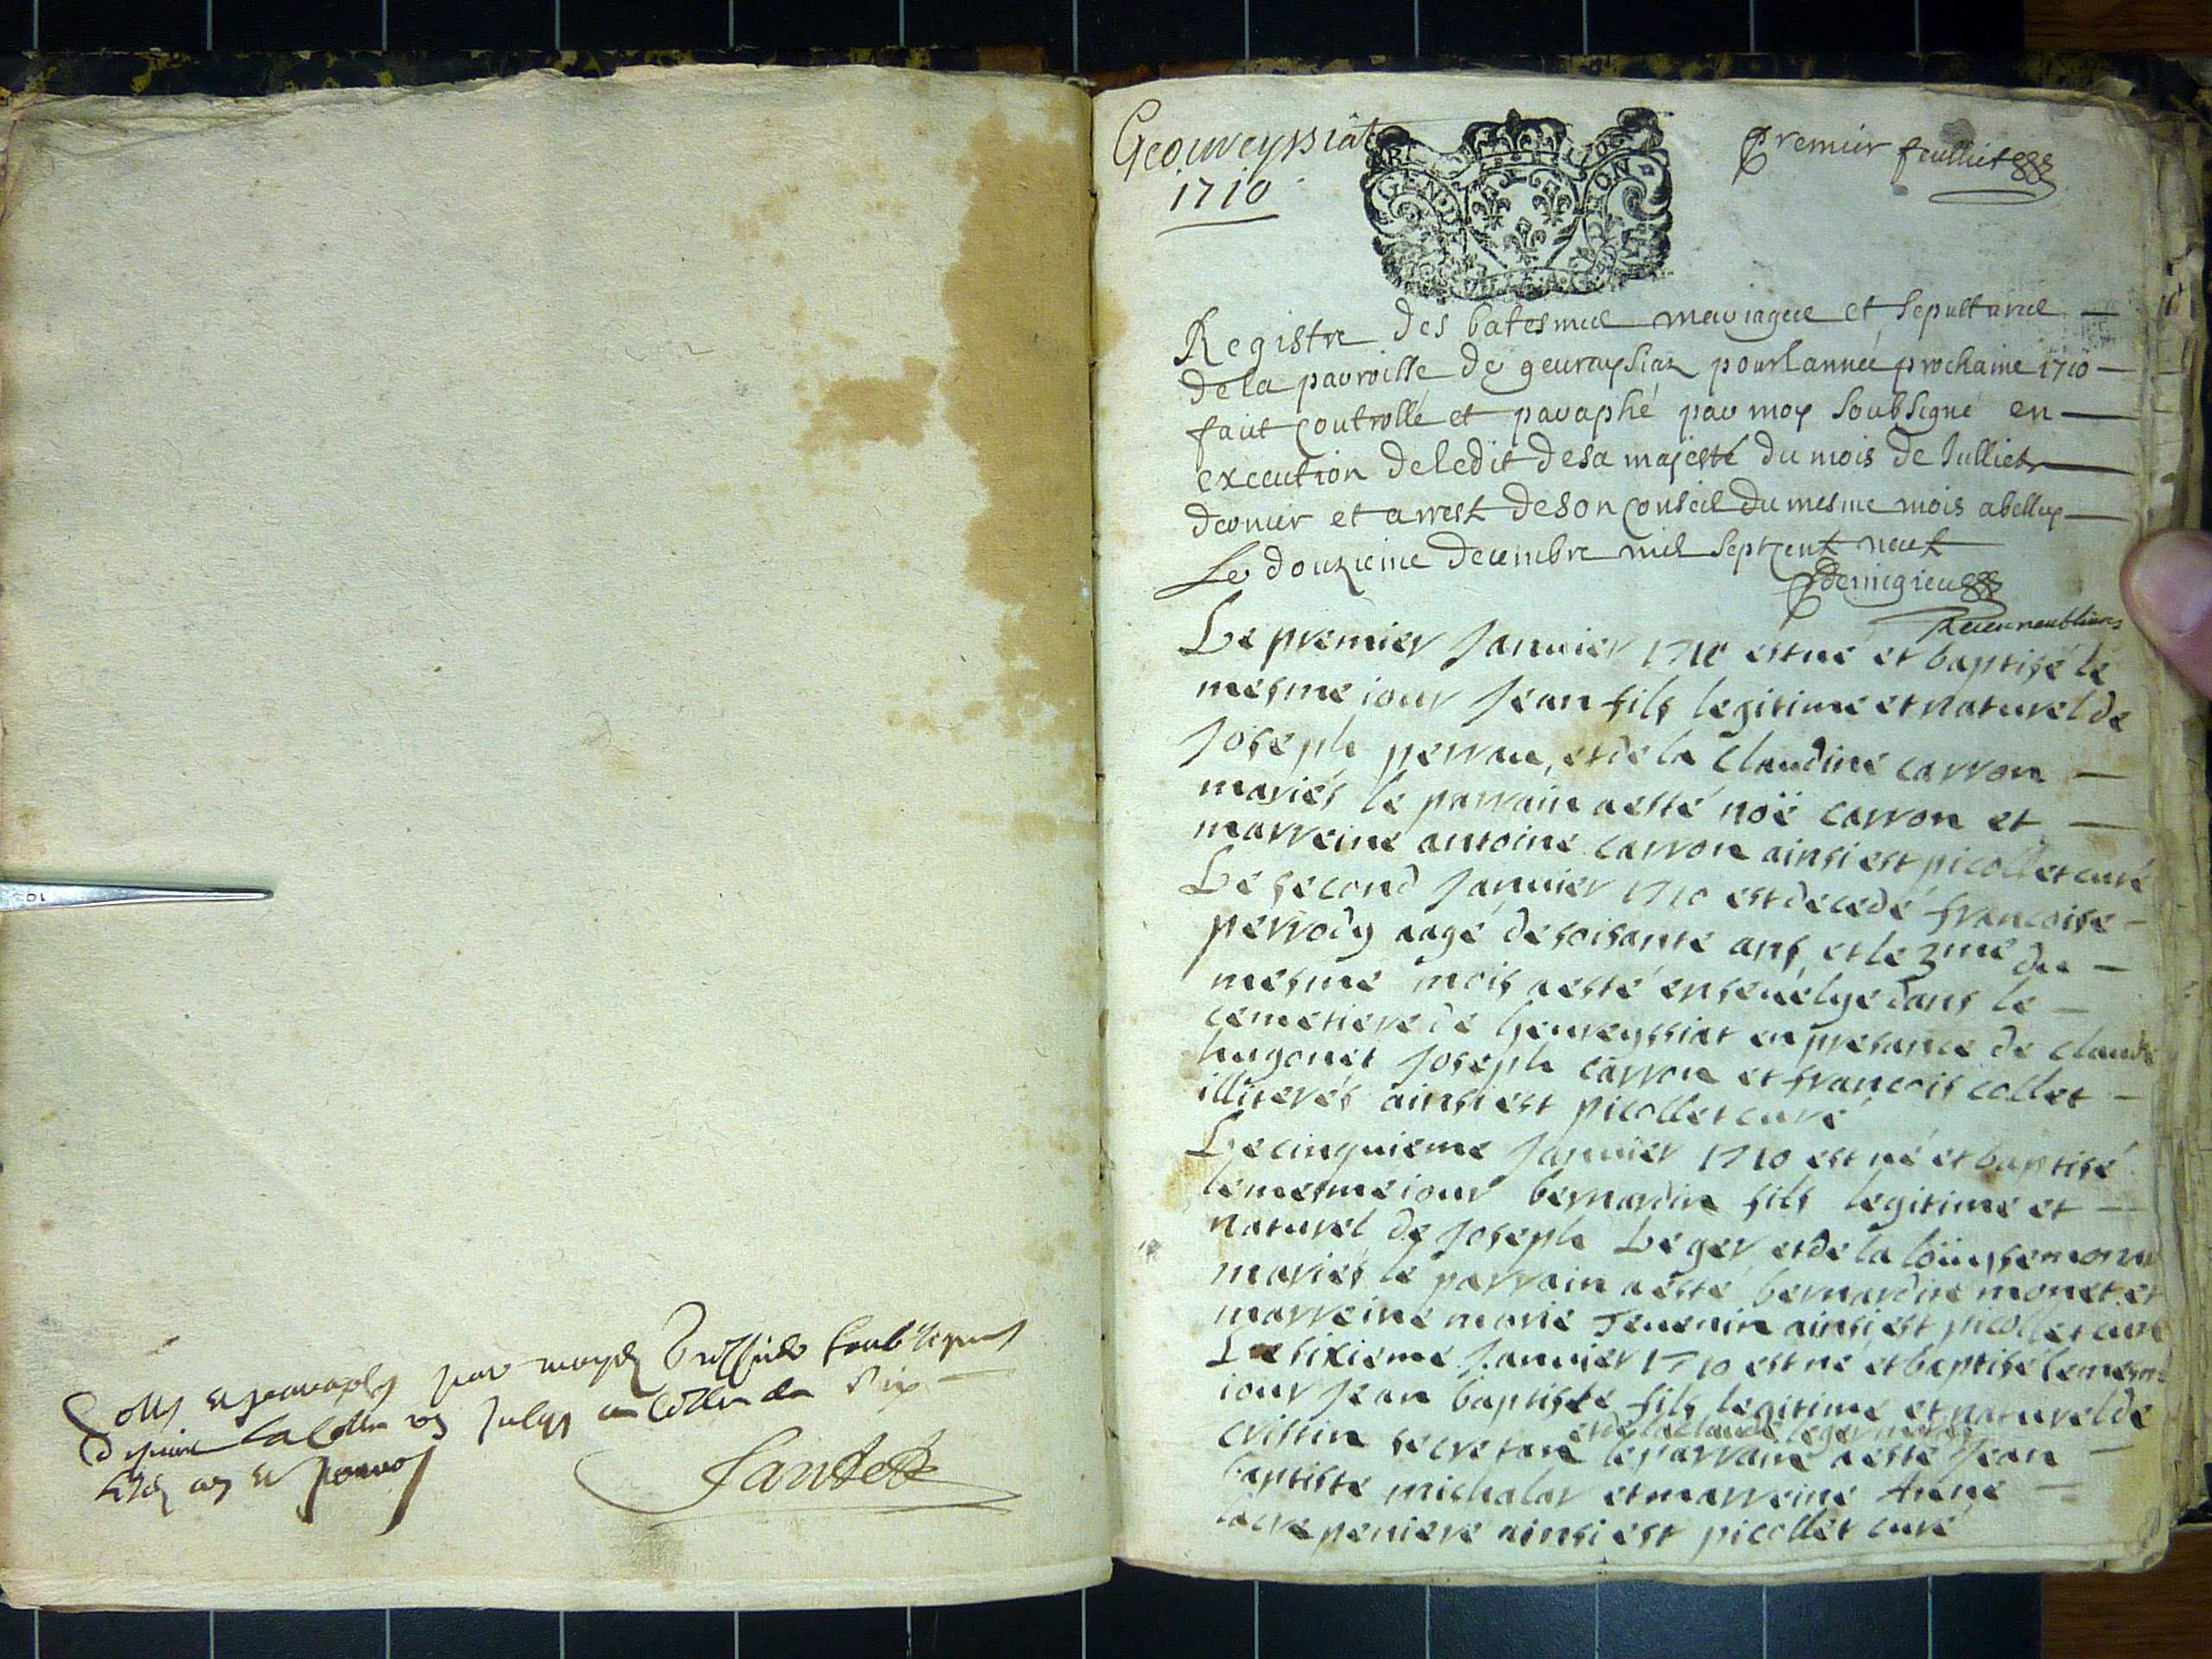 Geouveyssiat
1710
GEN
ON
premier feulliet
Registre des batesmes mariages et sepultures
de la parroisse de geurayssiaz pour lannee prochaine 1710
faict controllé et paraphé par moy soubsigné en
execution de ledit de sa majesté du mois de Julliet
dernier et arrest de son conseil du mesme mois abelley
Le douzieme decembre mil sept cent neuf
Le premier Januier 1710 est né et baptisé le
mesme iour Jean fils legitime et naturel de
Joseph perran, et de la Claudine carron
mariés le parrain a esté noë carron et
marreine antoine carron ainsi est picollet curé
Le second Januier 1710 est decedé francoise
perrody aagé de soisante ans et le 3me du
mesme mois a esté enseuelye dans le
cemetiere de Geureyssiat en presance de claude
hugonet Joseph carron et francois collet
illiterés ainsi est picollet curé
Le cinquieme Januier 1710 est né et baptisé
le mesme iour bernardin fils legitime et
naturel de Joseph Leger et de la loüyse monet
mariés le parrain a esté bernardin monet et
marreine marie Jeuenin ainsi est picollet curé
Le sixieme Januier 1710 est né et baptisé le mesme
iour Jean baptiste fils legitime et naturel de
et de la claude leger mariés
cristin secretan le parrain a esté Jean
baptiste michalar et marreine Anne
ainsi est picollet curé
Cotté et paraphé par moy soubsigné